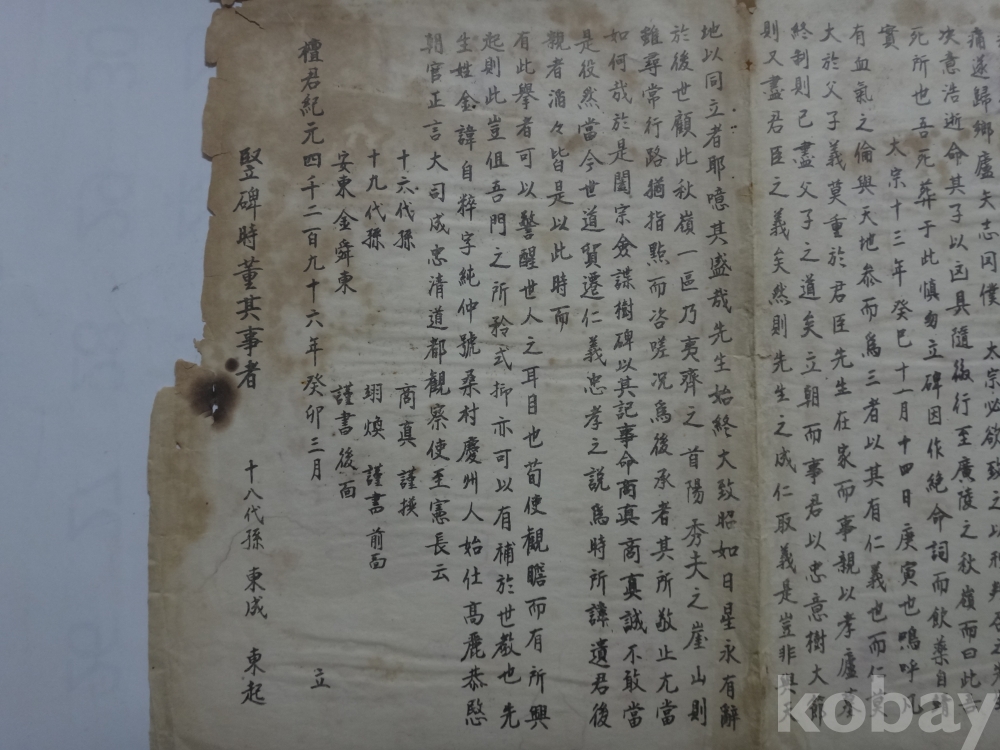 痛遂歸鄉廬矢志罔僕 太宗必欲致之以刑判
決意浩逝命其子以凶具隨後行至廣陵之秋嶺而曰此吾
死所也吾死葬于此愼勿立碑因作絶命詞而飮藥自
實 太宗十三年癸巳十一月十四日庚寅也嗚呼凡
有血氣之倫與天地參而爲三者以其有仁義也而仁莫
大於父子義莫重於君臣先生在家而事親以孝廬墓
終制則已盡父子之道矣立朝而事君以忠意樹大節
則又盡君臣之義矣然則先生之成仁取義是豈非與天
地以同立者耶噫其盛哉先生始終大致昭如日星永有辭
於後世顧此秋嶺一區乃夷齊之首陽秀夫之崖山則
雖尋常行路猶指點而咨嗟况爲後承者其所敬止尤當
如何哉於是闔宗僉謀樹碑以其記事命商眞商眞誠不敢當
是役然當今世道貿遷仁義忠孝之説爲時所諱遺君後
親者滔々皆是以此時而
有此擧者可以警醒世人之耳目也苟使觀瞻而有所興
起則此豈但吾門之所矜式抑亦可以有補於世敎也先
生姓金諱自粹字純仲號桑村慶州人始仕高麗恭愍
朝官正言大司成忠清道都觀察使至憲長云
十六代孫 商眞 謹撰
十九代孫 翊煥 謹書 前面
安東金舜東 謹書後面
檀君紀元四千二百九十六年癸卯三月 立
竪碑時董其事者 十八代孫 東成 東起
kobay